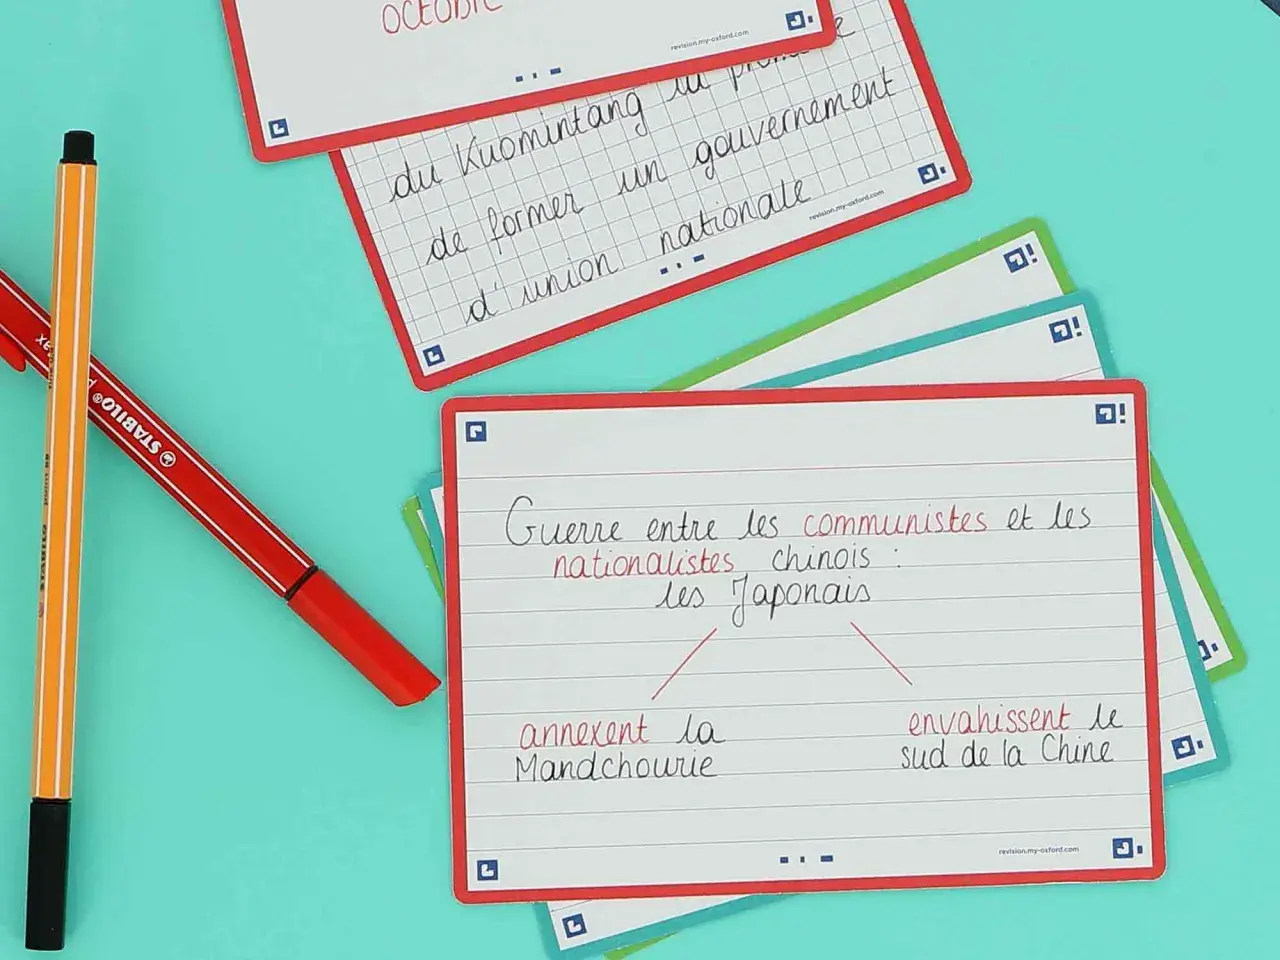 octobre
revision.my-oxford.com
du Kuomintang la
de former un gouvernement
d'union nationale
revision.my-oxford.com
Guerre entre les communistes et les
nationalistes chinois :
les Japonais
annexent la
Mandchourie
envahissent le
sud de la Chine
revision.my-oxford.com
STABILO®
STABILO